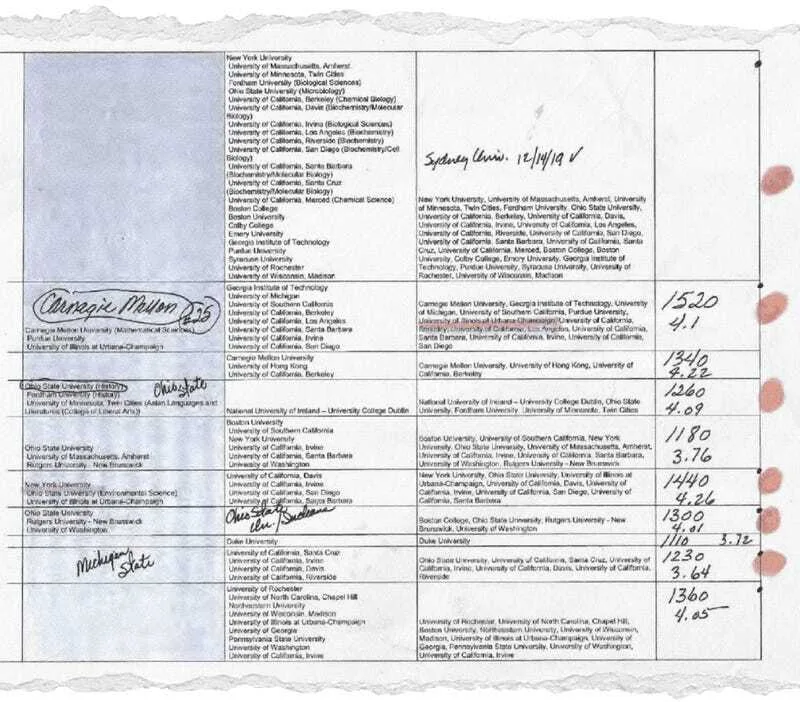 New York University
University of Massachusetts, Amherst
University of Minnesota, Twin Cities
Fordham University (Biological Sciences)
Ohio State University (Microbiology)
University of California, Berkeley (Chemical Biology)
University of California, Davis (Biochemistry/Molecular
Biology)
University of California, Irvine (Biological Sciences)
University of California, Los Angeles (Biochemistry)
University of California, Riverside (Biochemistry)
University of California, San Diego (Biochemistry/Cell
Biology)
University of California, Santa Barbara
(Biochemistry/Molecular Biology)
University of California, Santa Cruz
(Biochemistry/Molecular Biology)
University of California, Merced (Chemical Science)
Boston College
Boston University
Colby College
Emery University
Georgia Institute of Technology
Purdue University
Syracuse University
University of Rochester
University of Wisconsin, Madison
Sydney Univ. 12/14/19 √
New York University, University of Massachusetts, Amherst, University
of Minnesota, Twin Cities, Fordham University, Ohio State University,
University of California, Berkeley, University of California, Davis,
University of California, Irvine, University of California, Los Angeles,
University of California, Riverside, University of California, San Diego,
University of California, Santa Barbara, University of California, Santa
Cruz, University of California, Merced, Boston College, Boston
University, Colby College, Emory University, Georgia Institute of
Technology, Purdue University, Syracuse University, University of
Rochester, University of Wisconsin, Madison
Carnegie Mellon
#25
Carnegie Mellon University (Mathematical Sciences)
Purdue University
University of Illinois at Urbana-Champaign
Georgia Institute of Technology
University of Michigan
University of Southern California
University of California, Berkeley
University of California, Los Angeles
University of California, Santa Barbara
University of California, Irvine
University of California, San Diego
Carnegie Mellon University, Georgia Institute of Technology, University
of Michigan, University of Southern California, Purdue University,
University of Illinois at Urbana-Champaign, University of California,
Berkeley, University of California, Los Angeles, University of California,
Santa Barbara, University of California, Irvine, University of California,
San Diego
1520
4.1
Carnegie Mellon University
University of Hong Kong
University of California, Berkeley
Carnegie Mellon University, University of Hong Kong, University of
California, Berkeley
1340
4.22
Ohio State University (History)
Ohio State
Fordham University (History)
University of Minnesota, Twin Cities (Asian Languages and
Literatures (College of Liberal Arts))
National University of Ireland – University College Dublin
National University of Ireland – University College Dublin, Ohio State
University, Fordham University, University of Minnesota, Twin Cities
1260
4.09
Ohio State University
University of Massachusetts, Amherst
Rutgers University - New Brunswick
Boston University
University of Southern California
New York University
University of California, Irvine
University of California, Santa Barbara
University of Washington
Boston University, University of Southern California, New York
University, Ohio State University, University of Massachusetts, Amherst,
University of California, Irvine, University of California, Santa Barbara,
University of Washington, Rutgers University - New Brunswick
1180
3.76
New York University
Ohio State University (Environmental Science)
University of Illinois at Urbana-Champaign
University of California, Davis
University of California, Irvine
University of California, San Diego
University of California, Santa Barbara
New York University, Ohio State University, University of Illinois at
Urbana-Champaign, University of California, Davis, University of
California, Irvine, University of California, San Diego, University of
California, Santa Barbara
1440
4.26
Ohio State University
Rutgers University - New Brunswick
University of Washington
Ohio State
Un./Indiana
Boston College, Ohio State University, Rutgers University - New
Brunswick, University of Washington
1300
4.01
Duke University
Duke University
1110 3.72
Michigan
State
University of California, Santa Cruz
University of California, Irvine
University of California, Davis
University of California, Riverside
Ohio State University, University of California, Santa Cruz, University of
California, Irvine, University of California, Davis, University of California,
Riverside
1230
3.64
University of Rochester
University of North Carolina, Chapel Hill
Northeastern University
University of Wisconsin, Madison
University of Illinois at Urbana-Champaign
University of Georgia
Pennsylvania State University
University of Washington
University of California, Irvine
University of Rochester, University of North Carolina, Chapel Hill,
Boston University, Northeastern University, University of Wisconsin,
Madison, University of Illinois at Urbana-Champaign, University of
Georgia, Pennsylvania State University, University of Washington,
University of California, Irvine
1360
4.05